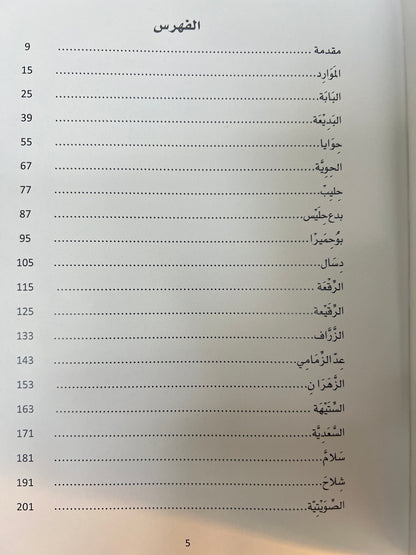 الفهرس
مقدمة ........................................ 9
المَوَارِد ........................................ 15
البَابَة ........................................ 25
البَدِيْعَة ........................................ 39
حِوَايا ........................................ 55
الحِوِيَّة ........................................ 67
حِلِيبْ ........................................ 77
بدع حِلَيْس ........................................ 87
بُوحْمِيرَا ........................................ 95
دِسَال ........................................ 105
الرِّقْعَة ........................................ 115
الرِّقَيْعة ........................................ 125
الزَّرَّاف ........................................ 133
عِدّ الزِّمَامِي ........................................ 143
الزَّهَرَانِ ........................................ 153
السِّتَيْهَة ........................................ 163
السَّعَدِيَّة ........................................ 171
سَلامَّ ........................................ 181
شِلاحَ ........................................ 191
الصِّوَيْتِيَّة ........................................ 201
5